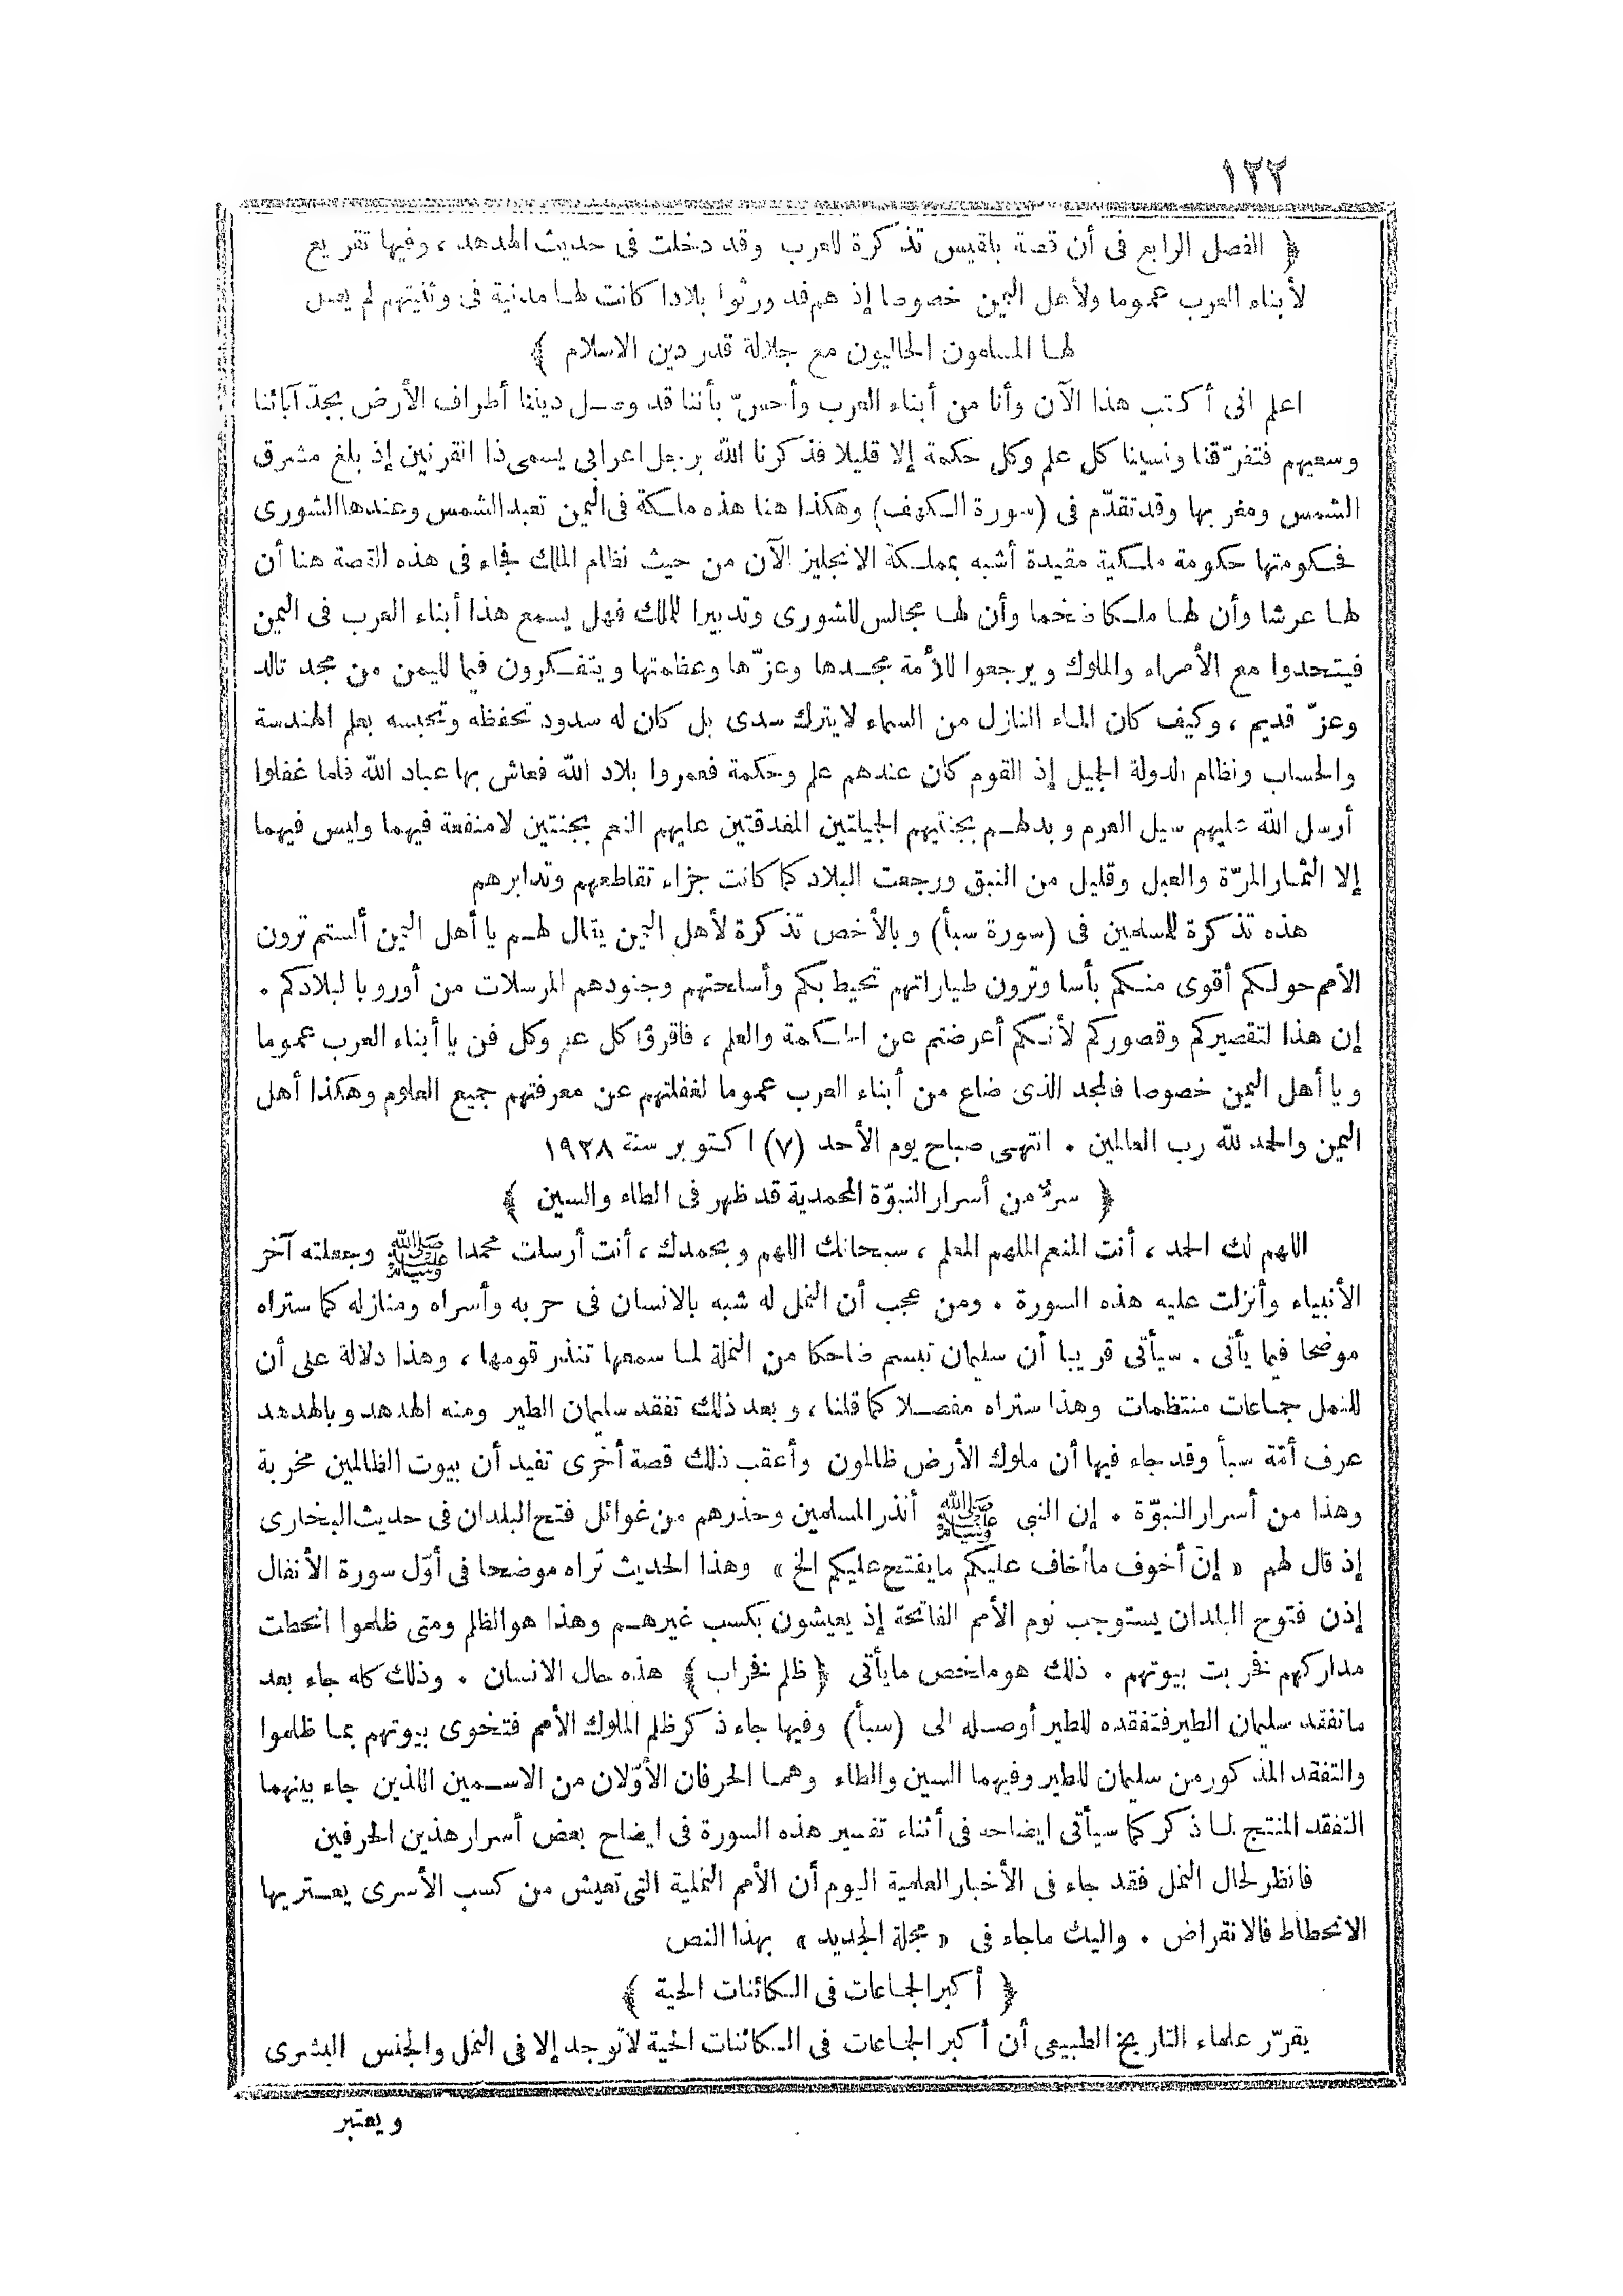 ١٢٢
﴿ الفصل الرابع فى أن قصة بلقيس تذكرة للعرب وقد دخلت فى حديث الهدهد ، وفيها تقريع
لأبناء العرب عموما ولأهل اليمن خصوصا إذ هم قد ورثوا بلادا كانت لها مدنية فى وثنيتهم لم يصل
لها المسلمون الحاليون مع جلالة قدر دين الاسلام ﴾
اعلم انى أكتب هذا الآن وأنا من أبناء العرب وأحسّ بأننا قد وصل ديننا أطراف الأرض بجدّ آبائنا
وسعيهم فتفرّقنا ونسينا كل علم وكل حكمة إلا قليلا فذكرنا الله برجل اعرابى يسمى ذا القرنين إذ بلغ مشرق
الشمس ومغربها وقد تقدّم فى (سورة الكهف) وهكذا هنا هذه ملكة فى اليمن تعبد الشمس وعندها الشورى
فحكومتها حكومة ملكية مقيدة أشبه بمملكة الانجليز الآن من حيث نظام الملك فجاء فى هذه القصة هنا أن
لها عرشا وأن لها ملكا ضخما وأن لها مجالس للشورى وتدبيرا للملك فهل يسمع هذا أبناء العرب فى اليمن
فيتحدوا مع الأمراء والملوك ويرجعوا للأمة مجدها وعزّها وعظمتها ويتفكرون فيما لليمن من مجد تالد
وعزّ قديم ، وكيف كان الماء النازل من السماء لايترك سدى بل كان له سدود تحفظه وتحبسه بعلم الهندسة
والحساب ونظام الدولة الجميل إذ القوم كان عندهم علم وحكمة فعمروا بلاد الله فعاش بها عباد الله فلما غفلوا
أرسل الله عليهم سيل العرم وبدلهم بجنتيهم الجميلتين المغدقتين عليهم النعم بجنتين لامنفعة فيهما وليس فيهما
إلا الثمار المرّة والعبل وقليل من النبق ورجعت البلاد كما كانت جزاء تقاطعهم وتدابرهم
هذه تذكرة للمسلمين فى (سورة سبأ) وبالأخص تذكرة لأهل اليمن يقال لهم يا أهل اليمن ألستم ترون
الأمم حولكم أقوى منكم بأسا وترون طياراتهم تحيط بكم وأسلحتهم وجنودهم المرسلات من أوروبا لبلادكم .
إن هذا لتقصيركم وقصوركم لأنكم أعرضتم عن الحكمة والعلم ، فاقرؤا كل علم وكل فن يا أبناء العرب عموما
ويا أهل اليمن خصوصا فالمجد الذى ضاع من أبناء العرب عموما لغفلتهم عن معرفتهم جميع العلوم وهكذا أهل
اليمن والحمد لله رب العالمين . انتهى صباح يوم الأحد (٧) اكتوبر سنة ١٩٢٨
﴿ سرّ من أسرار النبوّة المحمدية قد ظهر فى الطاء والسين ﴾
اللهم لك الحمد ، أنت المنعم الملهم المعلم ، سبحانك اللهم وبحمدك ، أنت أرسلت محمدا ﷺ وجعلته آخر
الأنبياء وأنزلت عليه هذه السورة . ومن عجب أن النمل له شبه بالانسان فى حربه وأسراه ومنازله كما ستراه
موضحا فيما يأتى . سيأتى قريبا أن سليمان تبسم ضاحكا من النملة لما سمعها تنذر قومها ، وهذا دلالة على أن
للنمل جماعات منتظمات وهذا ستراه مفصلا كما قلنا ، وبعد ذلك تفقد سليمان الطير ومنه الهدهد وبالهدهد
عرف أمّة سبأ وقد جاء فيها أن ملوك الأرض ظالمون وأعقب ذلك قصة أخرى تفيد أن بيوت الظالمين مخربة
وهذا من أسرار النبوّة . إن النبى ﷺ أنذر المسلمين وحذرهم من غوائل فتح البلدان فى حديث البخارى
إذ قال لهم « إنّ أخوف ما أخاف عليكم مايفتح عليكم الخ » وهذا الحديث تراه موضحا فى أوّل سورة الأنفال
إذن فتوح البلدان يستوجب نوم الأمم الفاتحة إذ يعيشون بكسب غيرهم وهذا هو الظلم ومتى ظلموا انحطت
مداركهم نفربت بيوتهم . ذلك هو ملخص مايأتى ﴿ ظلم فخراب ﴾ هذه حال الانسان . وذلك كله جاء بعد
ماتفقد سليمان الطير فتفقده للطير أوصله الى (سبأ) وفيها جاء ذكر ظلم الملوك الأمم فتخوى بيوتهم بما ظلموا
والتفقد المذكور من سليمان للطير وفيهما السين والطاء وهما الحرفان الأوّلان من الاسمين اللذين جاء بينهما
التفقد المنتج لما ذكر كما سيأتى ايضاحه فى أثناء تفسير هذه السورة فى ايضاح بعض أسرار هذين الحرفين
فانظر لحال النمل فقد جاء فى الأخبار العلمية اليوم أن الأمم النملية التى تعيش من كسب الأسرى يعتريها
الانحطاط فالانقراض . واليك ماجاء فى « مجلة الجديد » بهذا النص
﴿ أكبر الجماعات فى الكائنات الحية ﴾
يقرّر علماء التاريخ الطبيعى أن أكبر الجماعات فى الكائنات الحية لاتوجد إلا فى النمل والجنس البشرى
ويعتبر